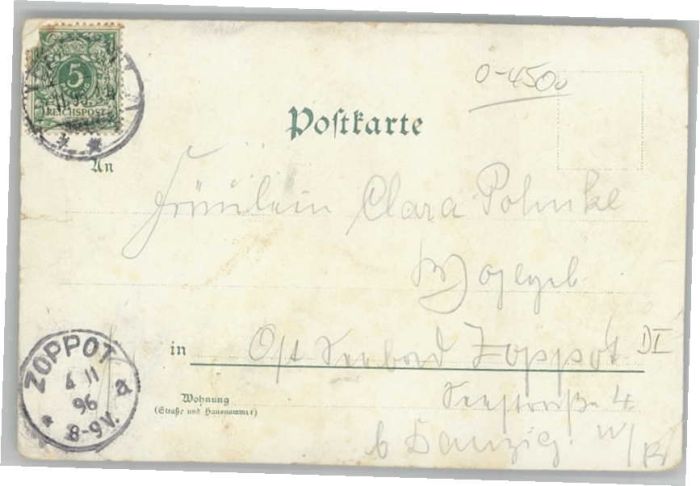 5
REICHSPOST
0-4500
Postkarte
An
Fräulein Clara Pohnke
in Ost Seebad Zoppot DI
Wohnung
(Straße und Hausnummer)
Seestraße 4
b Danzig W/Pr
ZOPPOT
4 11
96
8-9V. a